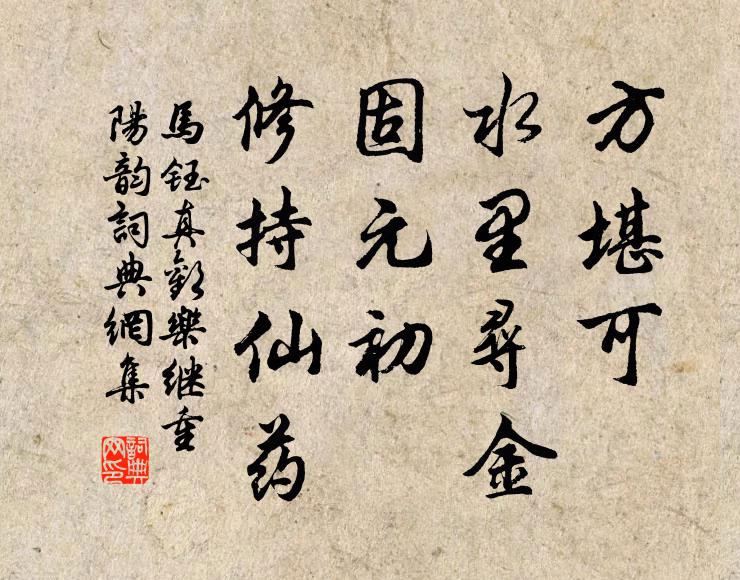 方堪可
水里尋金
固元初
修持仙药
馬鈺真欢樂继重
陽韵詞典網集
詞典网印